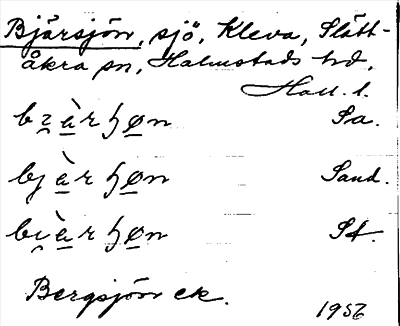 Bjärsjön, sjö, Kleva, Slätt-
åkra sn, Halmstads hd,
Hall. l.
bi̯àrʃøn Sa.
bjàrʃøn Sand.
bi̯àrʃøn St.
Bergsjön ek. 1956